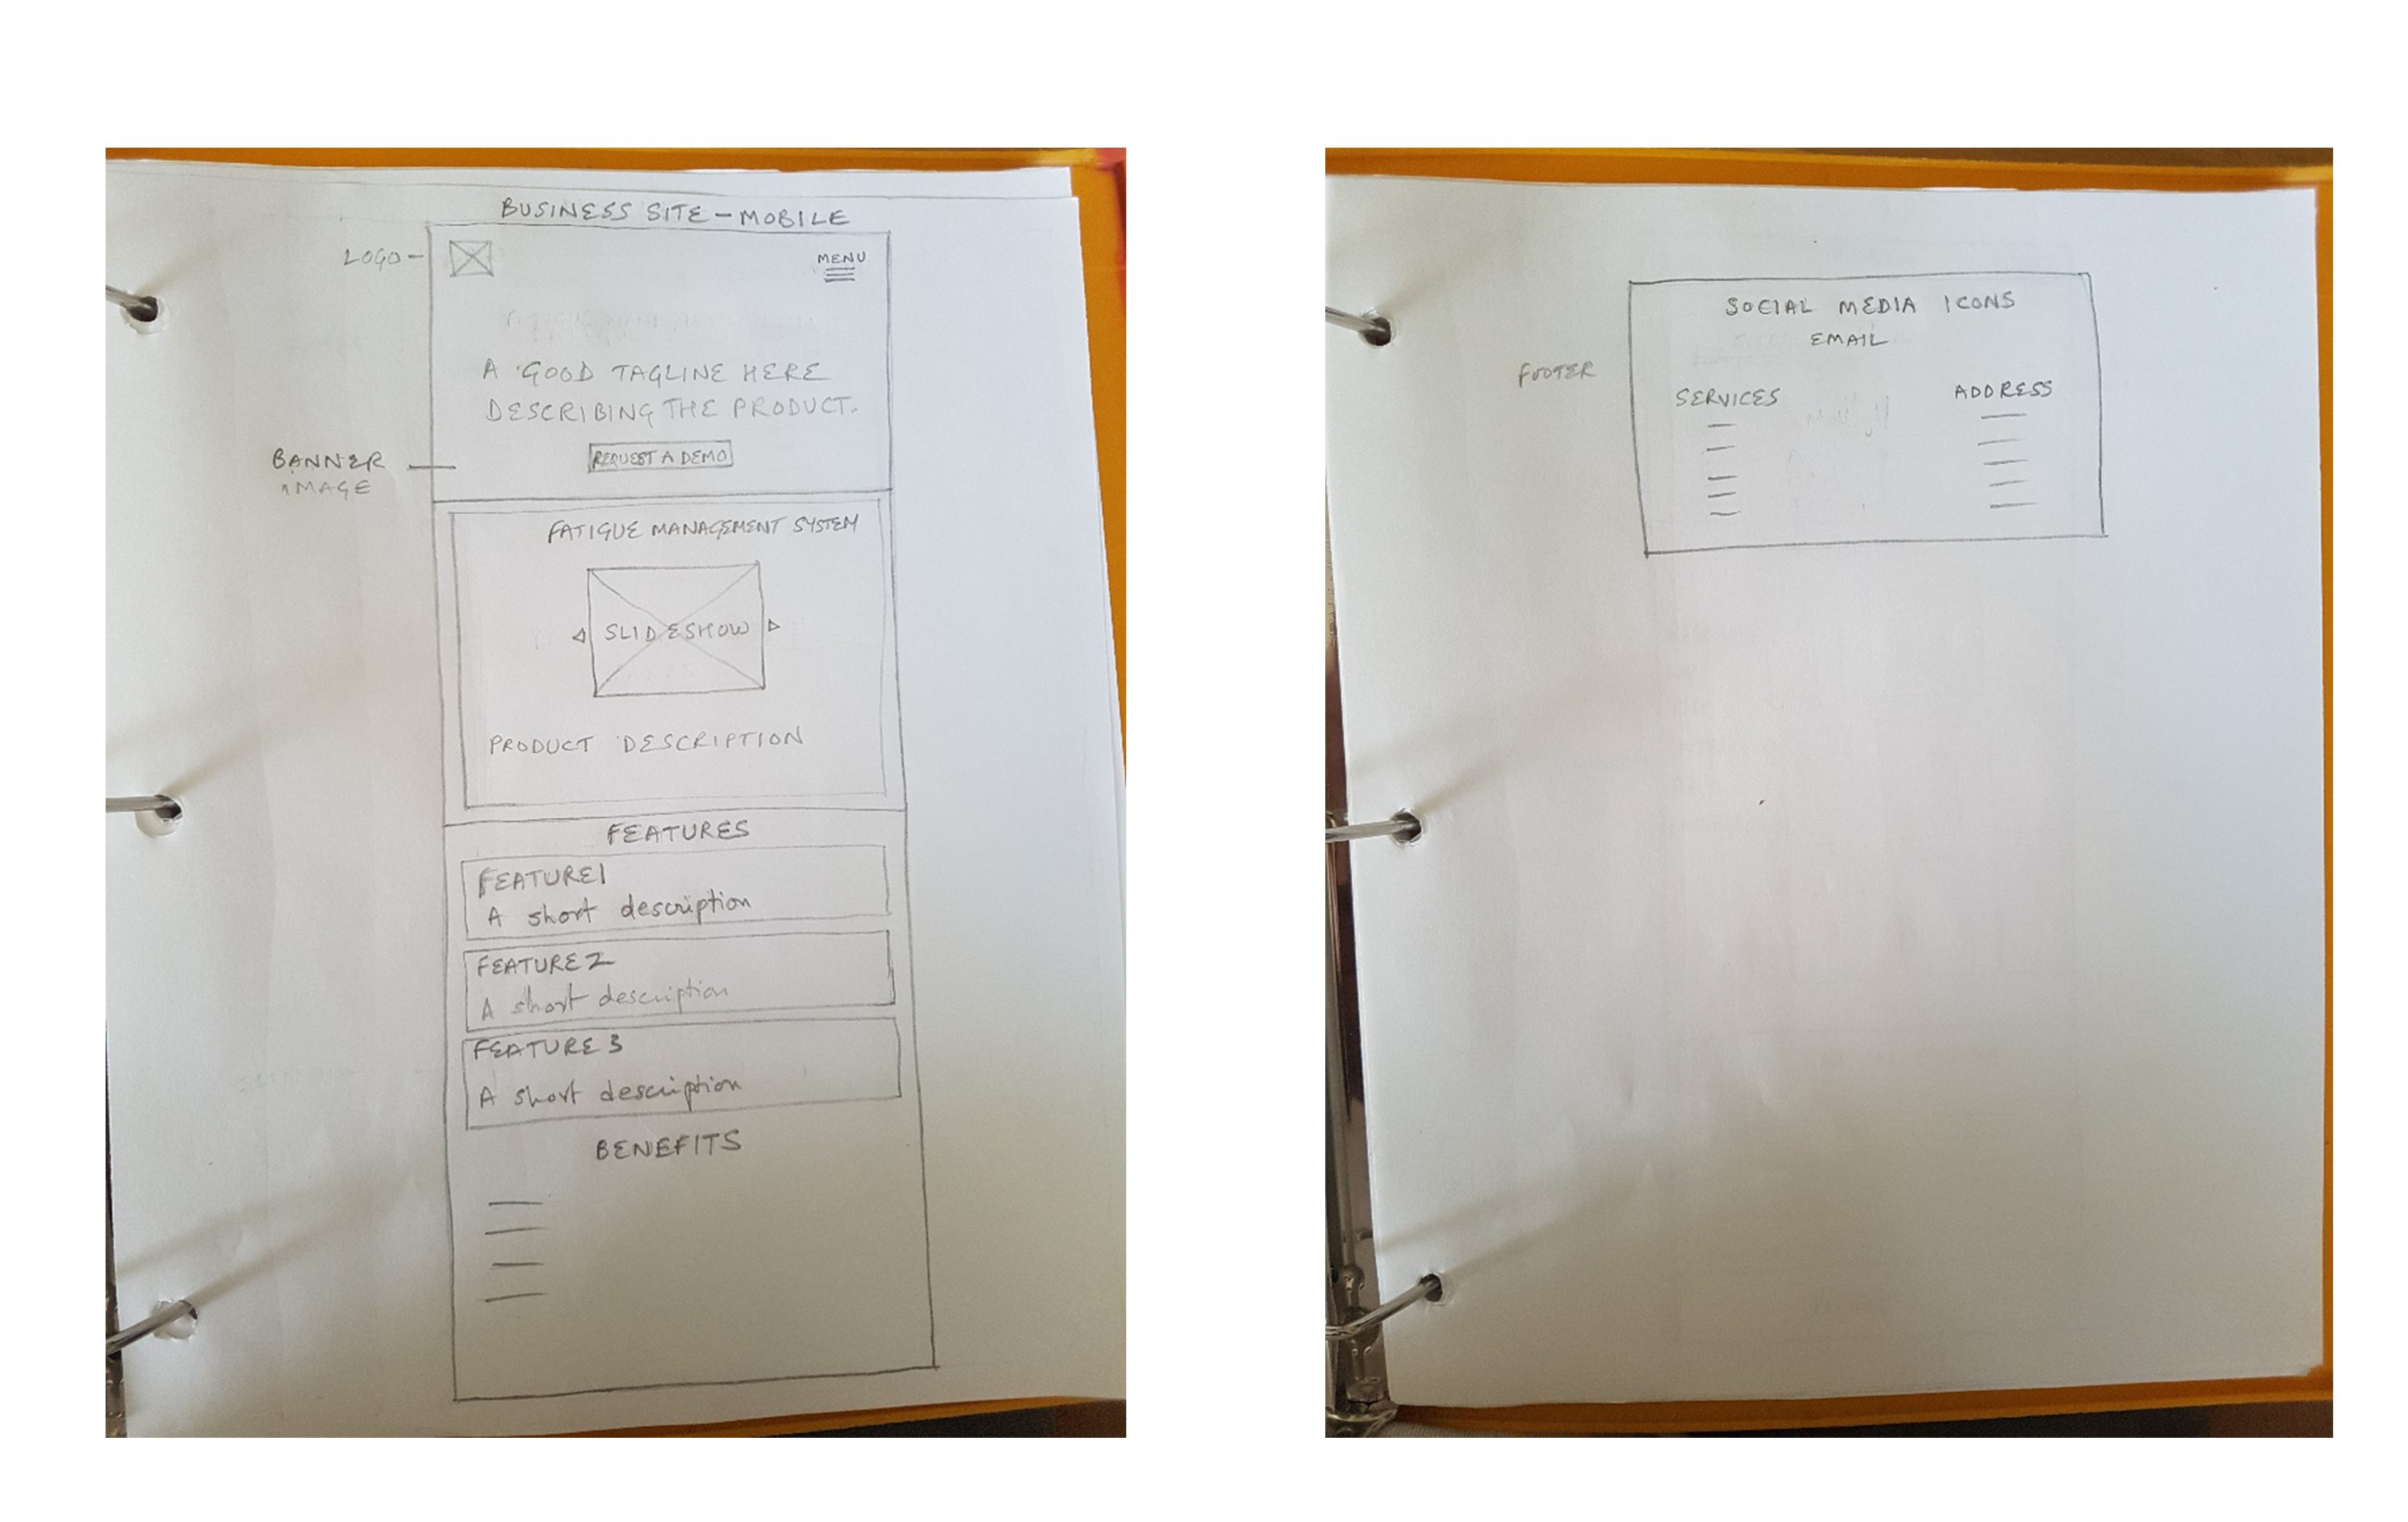 BUSINESS SITE - MOBILE
LOGO -
MENU
A GOOD TAGLINE HERE
DESCRIBING THE PRODUCT.
REQUEST A DEMO
BANNER
IMAGE
FATIGUE MANAGEMENT SYSTEM
SLIDESHOW
PRODUCT DESCRIPTION
FEATURES
FEATURE 1
A short description
FEATURE 2
A short description
FEATURE 3
A short description
BENEFITS
SOCIAL MEDIA ICONS
EMAIL
FOOTER
SERVICES
ADDRESS